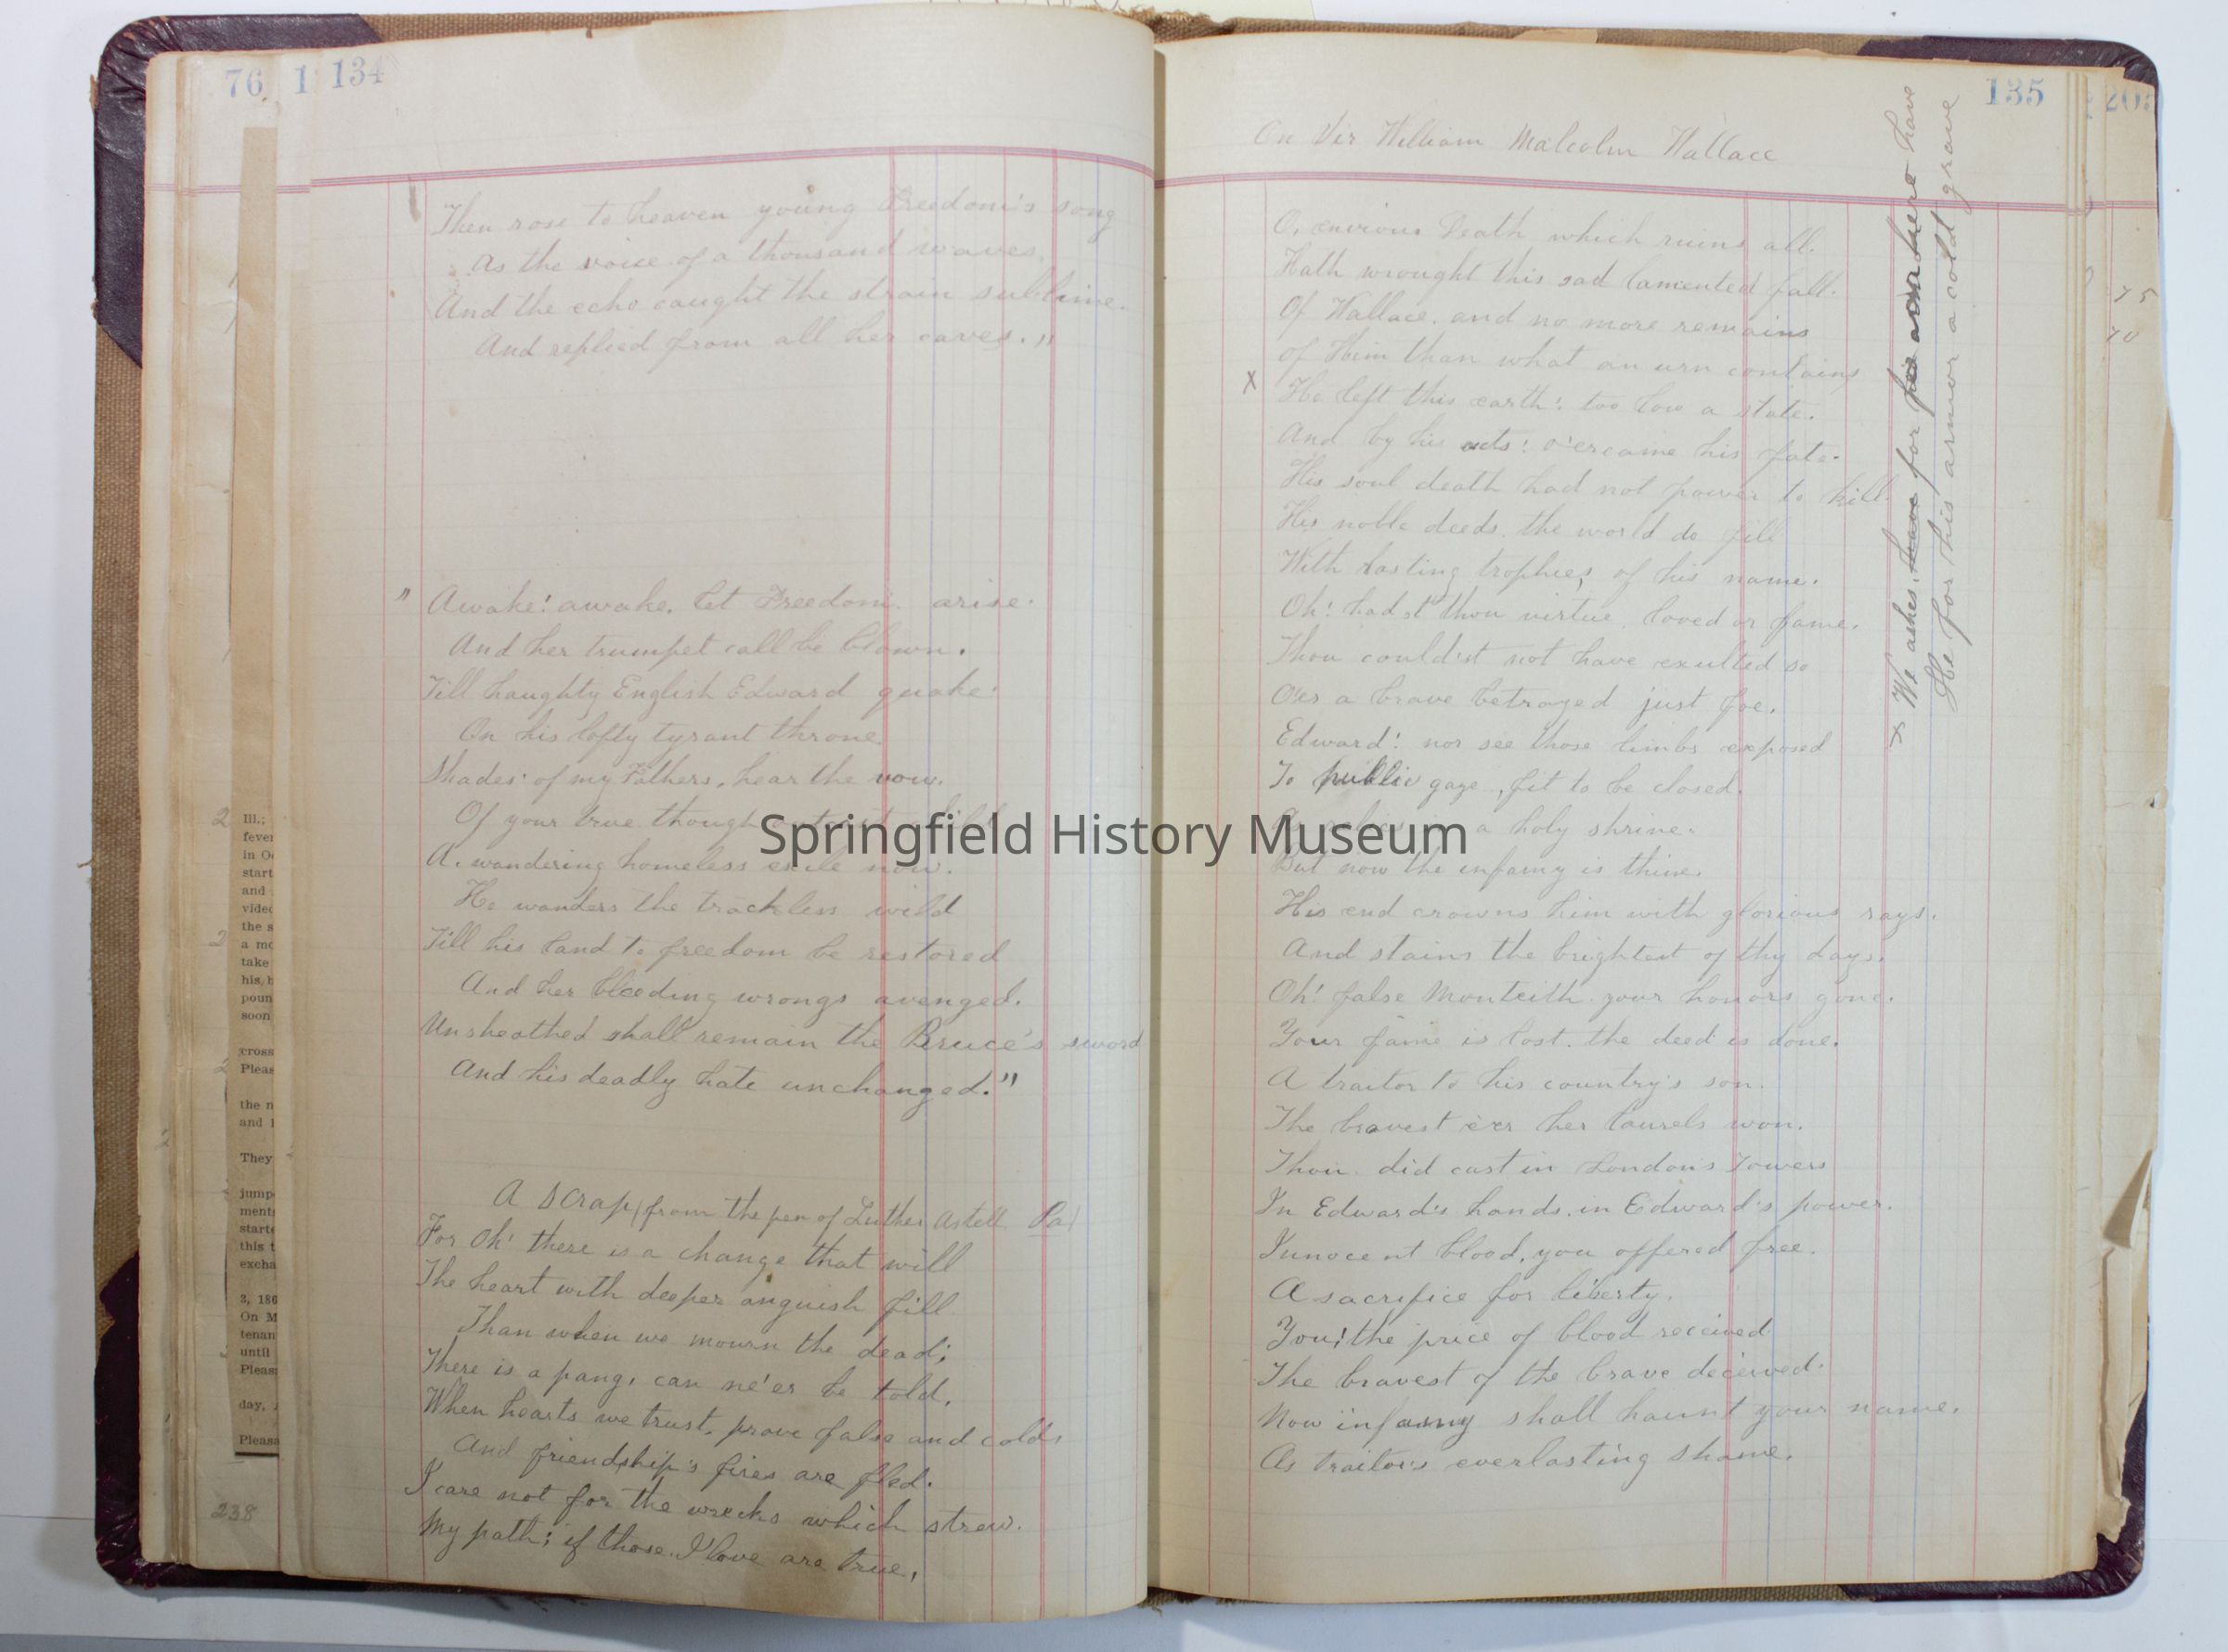 76 1 134
Then rose to heaven young Freedom's song
As the voice of a thousand waves.
And the echo caught the strain sublime.
And replied from all her caves."
" Awake! awake. let Freedom. arise.
And her trumpet call be blown.
Till haughty English Edward quake.
On his lofty tyrant throne.
Shades of my Fathers, hear the vow.
Of your true though
A. wandering homeless exile now.
He wanders the trackless wild
Till his land to freedom be restored
And her bleeding wrongs avenged.
Unsheathed shall remain the Bruce's sword
And his deadly hate unchanged."
A Scrap, from the pen of Luther Astell Pa
For Oh! there is a change that will
The heart with deeper anguish fill
Than when we mourn the dead;
There is a pang, can ne'er be told,
When hearts we trust, prove false and cold,
And friendship's fires are fled.
I care not for the wrecks which strew.
My path; if those. I love are true,
238
Ill.;
fever
in O
start
and
video
the s
a mo
take
his, b
poun
soon
cross
Pleas
the n
and
They
jump
ments
starte
this t
excha
3, 186
On M
tenan
until
Pleas
day,
Pleasa
135
On Sir William Malcolm Wallace
O, envious Death which ruins all.
Hath wrought this sad lamented fall.
Of Wallace. and no more remains
of Him than what an urn contains
x He left this earth! too low a state.
And by his acts! o'ercame his fate.
His soul death had not power to kill
His noble deeds the world do fill
With lasting trophies of his name.
Oh! hadst thou virtue, loved or fame,
Thou could'st not have exulted so
O'er a brave betrayed just foe.
Edward! nor see those limbs exposed
To public gaze, fit to be closed.
a holy shrine.
But now the infamy is thine.
His end crowns him with glorious rays.
And stains the brightest of thy days.
Oh! false Monteith. your honors gone.
Your fame is lost. the deed is done.
A traitor to his country's son.
The bravest e'er her laurels won.
Thou did cast in London's Towers
In Edward's hands. in Edward's power.
Innocent blood, you offered free.
A sacrifice for liberty.
You! the price of blood received
The bravest of the brave deceived.
Now infamy shall haunt your name.
As traitor's everlasting shame.
x We ashes, have for his armour here have
He for his armor a cold grave
75
70
Springfield History Museum